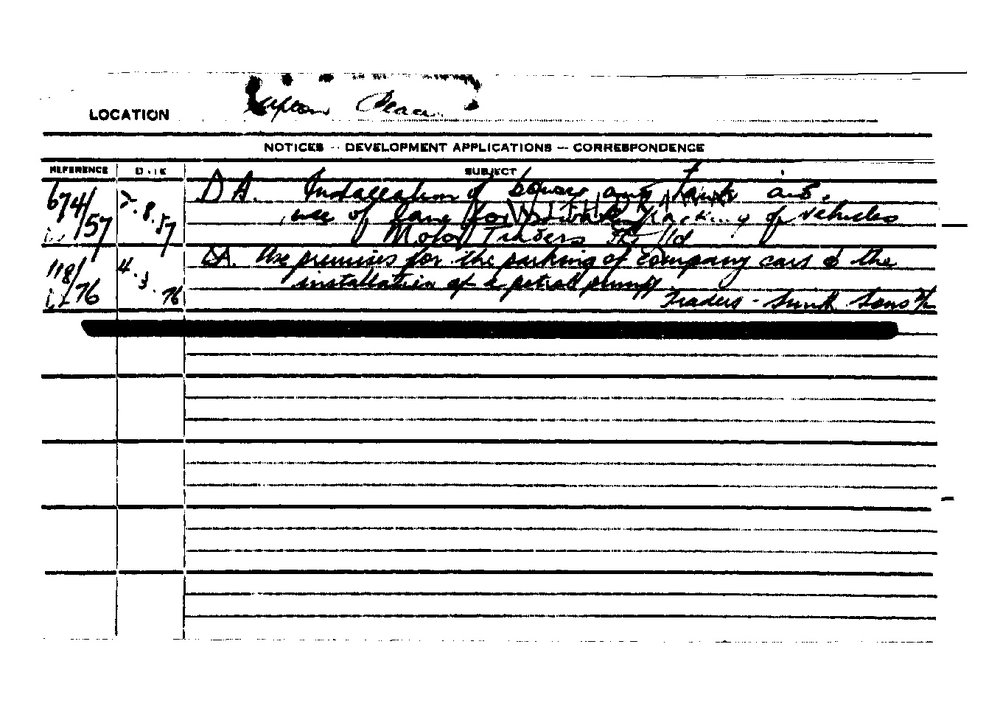 LOCATION
NOTICES -- DEVELOPMENT APPLICATIONS -- CORRESPONDENCE
REFERENCE DATE SUBJECT
674/57 7.8.57 D A. Installation of and tanks and
use of lane for parking of vehicles
WITHDRAWN
Motor Traders Pty Ltd
118/76 4.3.76 DA. Use premises for the parking of company cars & the
installation of a petrol pump
Traders - Smith Sons P/L